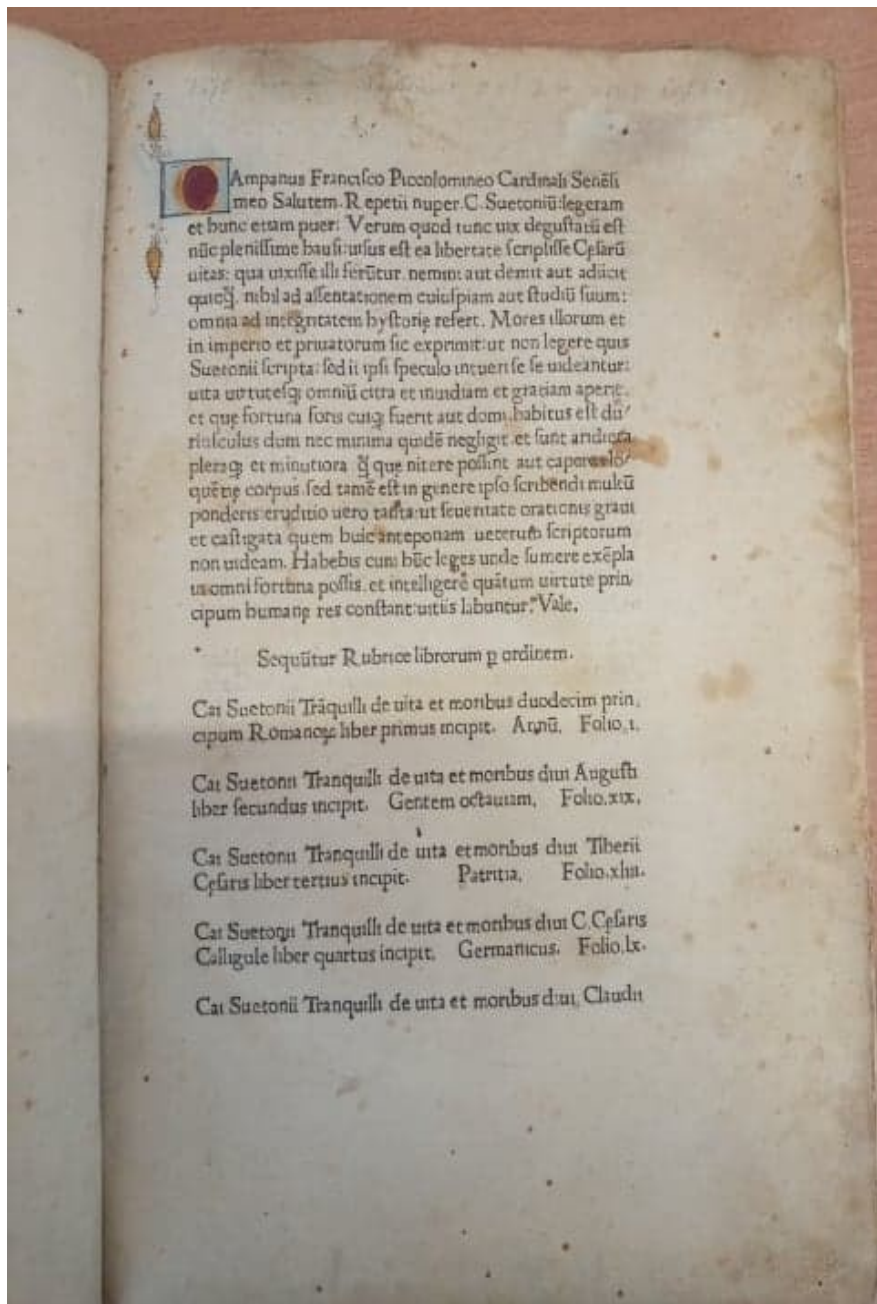 CAmpanus Franciſco Piccolomineo Cardinali Senēſi
meo Salutem. Repetii nuper. C. Suetoniū: legeram
et hunc etiam puer: Verum quod tunc uix deguſtatū eſt
nūc pleniſſime hauſi: uiſus eſt ea libertate ſcripſiſſe Cęſarū
uitas: qua uixiſſe illi ferūtur. nemini aut demit aut adiicit
quicq̄. nihil ad aſſentationem cuiuſpiam aut ſtudiū ſuum:
omnia ad integritatem hyſtorię refert. Mores illorum et
in imperio et priuatorum ſic exprimit: ut non legere quis
Suetonii ſcripta: ſed ii ipſi ſpeculo intueri ſe ſe uideantur:
uita uirtuteſqꝫ omniū citra et inuidiam et gratiam aperit.
et quę fortuna foris cuiqꝫ fuerit aut domi. habitus eſt du/
riuſculus dum nec minima quidē negligit. et ſunt aridiora
pleraqꝫ et minutiora q̄ que nitere poſſint aut capere elo/
quētię corpus. ſed tamē eſt in genere ipſo ſcribendi multū
ponderis: eruditio uero tanta: ut ſeueritate orationis graui
et caſtigata quem huic anteponam ueterum ſcriptorum
non uideam. Habebis cum hūc leges unde ſumere exēpla
in omni fortuna poſſis. et intelligere quātum uirtute prin
cipum humanę res conſtant: uitiis labuntur. Vale.
Sequūtur Rubrice librorum ꝑ ordinem.
Cai Suetonii Trāquilli de uita et moribus duodecim prin,
cipum Romanoꝝ liber primus incipit. Annū. Folio.i.
Cai Suetonii Tranquilli de uita et moribus diui Auguſti
liber ſecundus incipit. Gentem octauiam. Folio.xix.
Cai Suetonii Tranquilli de uita et moribus diui Tiberii
Cęſaris liber tertius incipit. Patritia. Folio.xliii.
Cai Suetonii Tranquilli de uita et moribus diui C. Cęſaris
Calligule liber quartus incipit. Germanicus. Folio.lx.
Cai Suetonii Tranquilli de uita et moribus diui Claudii